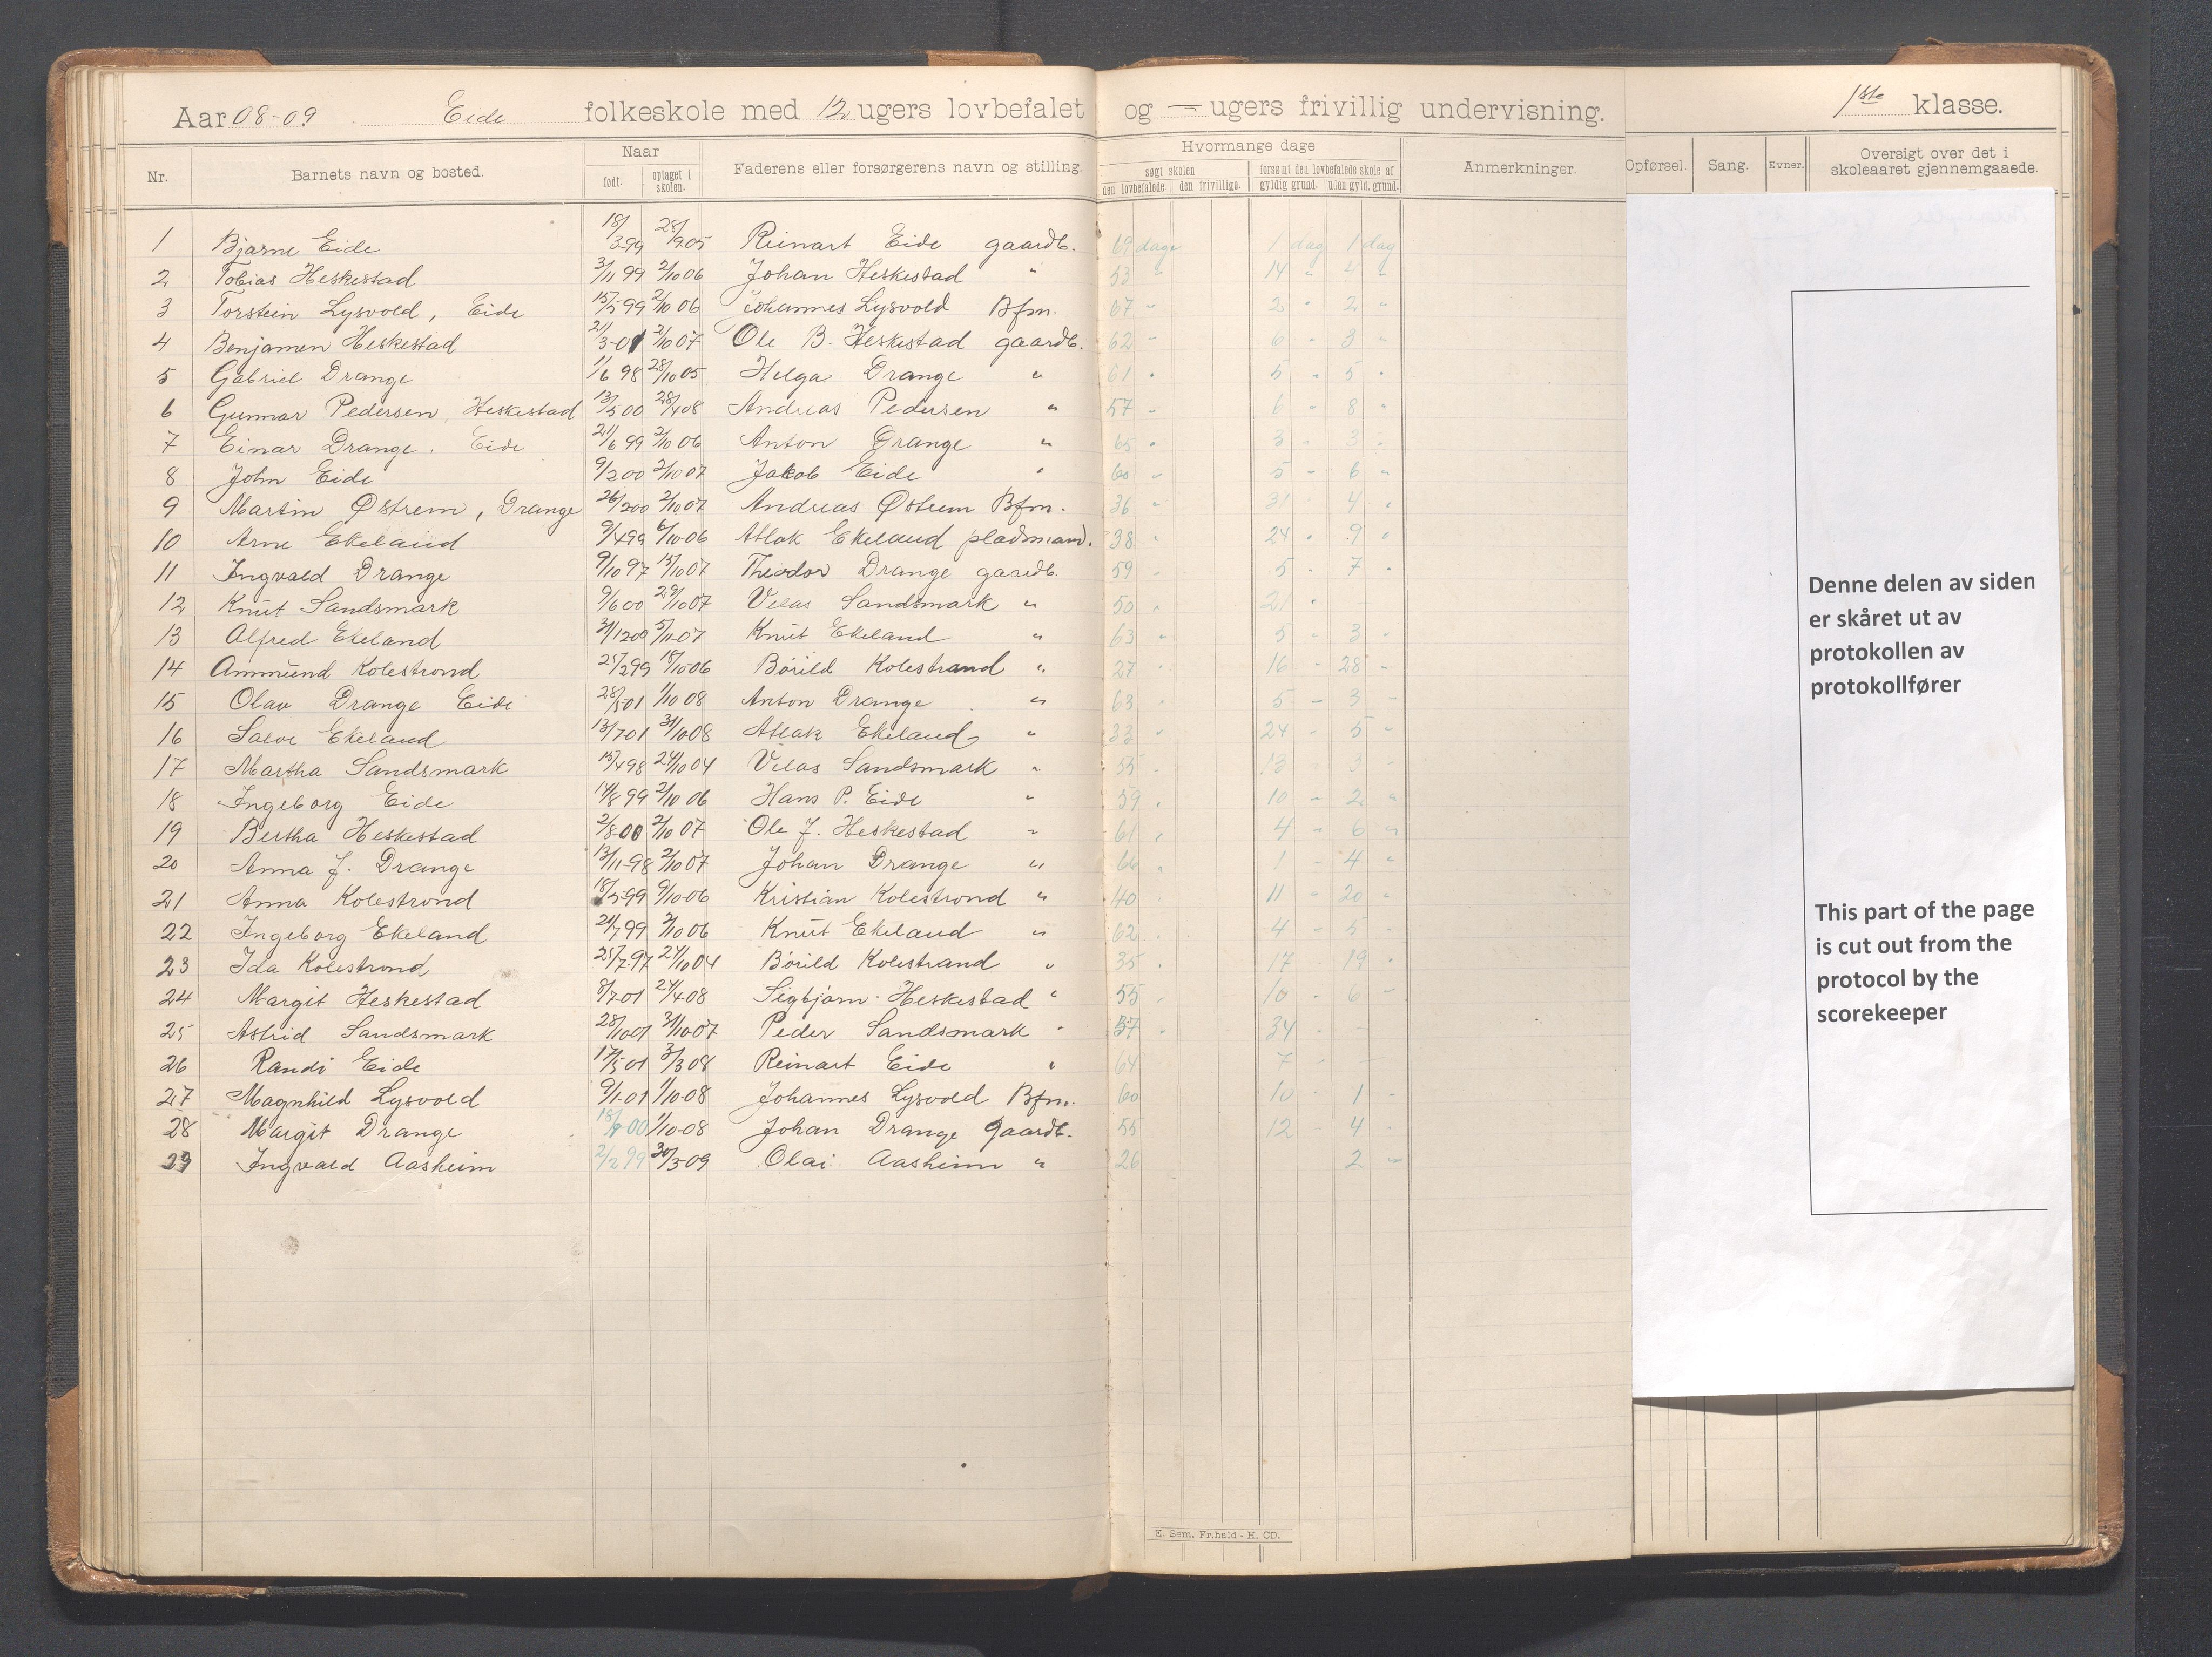 Aar 08-09 Eide folkeskole med 12 ugers lovbefalet og — ugers frivillig undervisning. 1ste klasse.
Nr. Barnets navn og bosted. Naar født. optaget i skolen. Faderens eller forsørgerens navn og stilling. Hvormange dage søgt skolen den lovbefalede. den frivillige. forsømt den lovbefalede skole af gyldig grund. uden gyld. grund. Anmerkninger. Opførsel. Sang. Evner. Oversigt over det i skoleaaret gjennemgaaede.
1 Bjarne Eide 18/3 99 28/9 05 Reinart Eide gaardb. 69 dage 1 dag 1 dag
2 Tobias Heskestad 3/11 99 2/10 06 Johan Heskestad " 53 " 14 " 4 "
3 Torstein Lysvold, Eide 15/5 99 2/10 06 Johannes Lysvold Bfm. 67 " 2 " 2 "
4 Benjamen Heskestad 21/3-01 2/10 07 Ole B. Heskestad gaardb. 62 " 6 " 3 "
5 Gabriel Drange 1/6 98 28/10 05 Helga Drange " 61 " 5 " 5 "
6 Gunnar Pedersen, Heskestad 13/5 00 28/4 08 Andreas Pedersen " 57 " 6 " 8 "
7 Einar Drange, Eide 21/6 99 2/10 06 Anton Drange " 65 " 3 " 3 "
8 John Eide 9/2 00 2/10 07 Jakob Eide " 60 " 5 " 6 "
9 Martin Østrem, Drange 26/2 00 2/10 07 Andreas Østrem Bfm. 36 " 31 4 "
10 Arne Ekeland 9/4 99 6/10-06 Atlak Ekeland pladsmand. 38 " 24 " 9 "
11 Ingvald Drange 9/10 97 15/10 07 Theodor Drange gaardb. 59 " 5 " 7 "
12 Knut Sandsmark 9/6 00 29/10 07 Velas Sandsmark " 50 " 21 "
13 Alfred Ekeland 31/12 00 5/11-07 Knut Ekeland " 63 " 5 " 3 "
14 Ammund Kolestrond 25/2 99 18/10-06 Børild Kolestrand " 27 " 16 " 28 "
15 Olav Drange Eide 28/5 01 1/10 08 Anton Drange " 63 " 5 " 3 "
16 Salve Ekeland 13/7 01 31/10 08 Atlak Ekeland " 33 " 24 " 5 "
17 Martha Sandsmark 15/4 98 24/10 04 Velas Sandsmark " 55 " 13 " 3 "
18 Ingeborg Eide 14/8 99 2/10 06 Hans P. Eide " 59 " 10 " 2 "
19 Bertha Heskestad 2/8-00 2/10 07 Ole J. Heskestad " 61 " 4 " 6 "
20 Anna J. Drange 13/11-98 2/10 07 Johan Drange " 66 " 1 " 4 "
21 Anna Kolestrond 18/5-99 9/10-06 Kristian Kolestrond " 40 " 11 " 20 "
22 Ingeborg Ekeland 21/7 99 2/10 06 Knut Ekeland " 62 " 4 " 5 "
23 Ida Kolestrond 25/7-97 24/10 04 Børild Kolestrand " 35 " 17 " 19 "
24 Margit Heskestad 8/7-01 24/4-08 Sigbjørn Heskestad " 55 " 10 " 6 "
25 Astrid Sandsmark 28/10 01 31/10-07 Peder Sandsmark " 57 " 34 "
26 Randi Eide 17/5-01 3/3 08 Reinart Eide " 64 7 "
27 Magnhild Lysvold 9/1-01 1/10-08 Johannes Lysvold Bfm. 60 10 " 1 "
28 Margit Drange 18/9 00 1/10-08 Johan Drange Gaardb. 55 12 " 4 "
29 Ingvald Aasheim 2/2 99 30/3-09 Olai Aasheim " 26 2 "
E. Sem, Fr.hald - H. CD.
Denne delen av siden
er skåret ut av
protokollen av
protokollfører
This part of the page
is cut out from the
protocol by the
scorekeeper